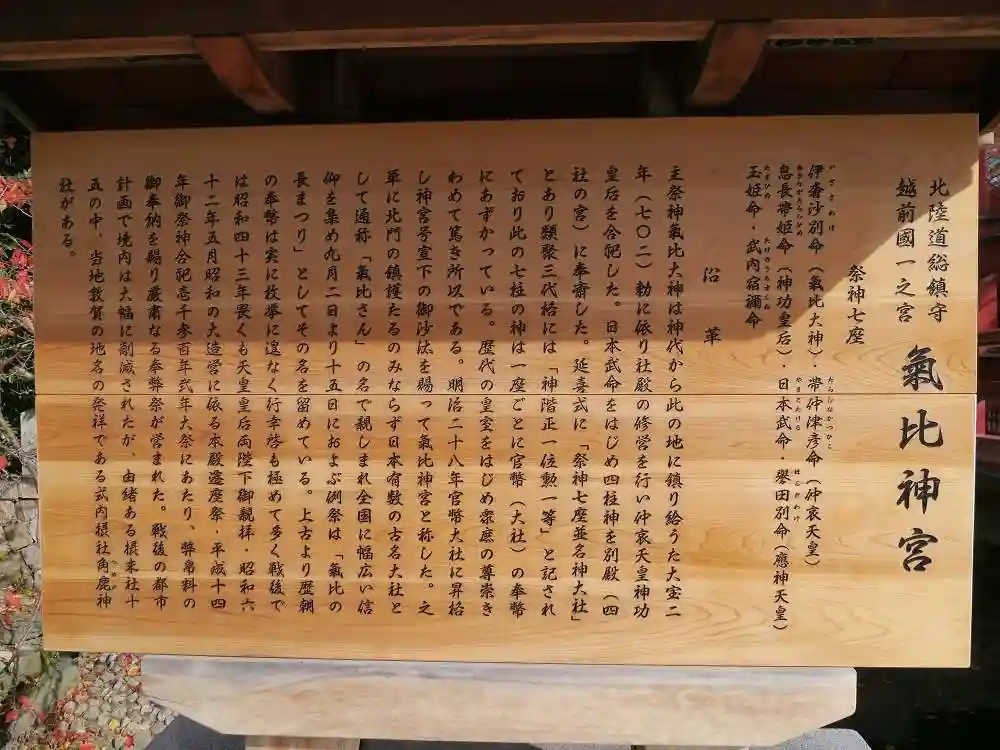 北陸道総鎮守
越前國一之宮
氣比神宮
祭神七座
伊奢沙別命(氣比大神)・帯仲津彦命(仲哀天皇)
いざさわけ
たらしなかつひこ
息長帯姫命(神功皇后)・日本武命・譽田別命(應神天皇)
おきながたらしひめ
やまとたける
ほむだわけ
玉姫命・武内宿禰命
たまひめ
たけのうちすくね
沿革
主祭神氣比大神は神代から此の地に鎮り給うた大宝二
年(七〇二)勅に依り社殿の修営を行い仲哀天皇神功
皇后を合祀した。日本武命をはじめ四柱神を別殿(四
社の宮)に奉斎した。延喜式に「祭神七座並名神大社」
とあり類聚三代格には「神階正一位勲一等」と記され
ており此の七柱の神は一座ごとに官幣(大社)の奉幣
にあずかっている。歴代の皇室をはじめ衆庶の尊崇き
わめて篤き所以である。明治二十八年官幣大社に昇格
し神宮号宣下の御沙汰を賜って氣比神宮と称した。之
單に北門の鎮護たるのみならず日本有数の古名大社と
して通称「氣比さん」の名で親しまれ全国に幅広い信
仰を集め九月二日より十五日におよぶ例祭は「氣比の
長まつり」としてその名を留めている。上古より歴朝
の奉幣は実に枚挙に遑なく行幸啓も極めて多く戦後で
は昭和四十三年畏くも天皇皇后両陛下御親拝・昭和六
十二年五月昭和の大造営に依る本殿遷座祭・平成十四
年御祭神合祀壱千参百年式年大祭にあたり、幣帛料の
御奉納を賜り厳粛なる奉幣祭が営まれた。戦後の都市
計画で境内は大幅に削減されたが、由緒ある摂末社十
五の中、当地敦賀の地名の発祥である式内摂社角鹿神
つぬが
社がある。